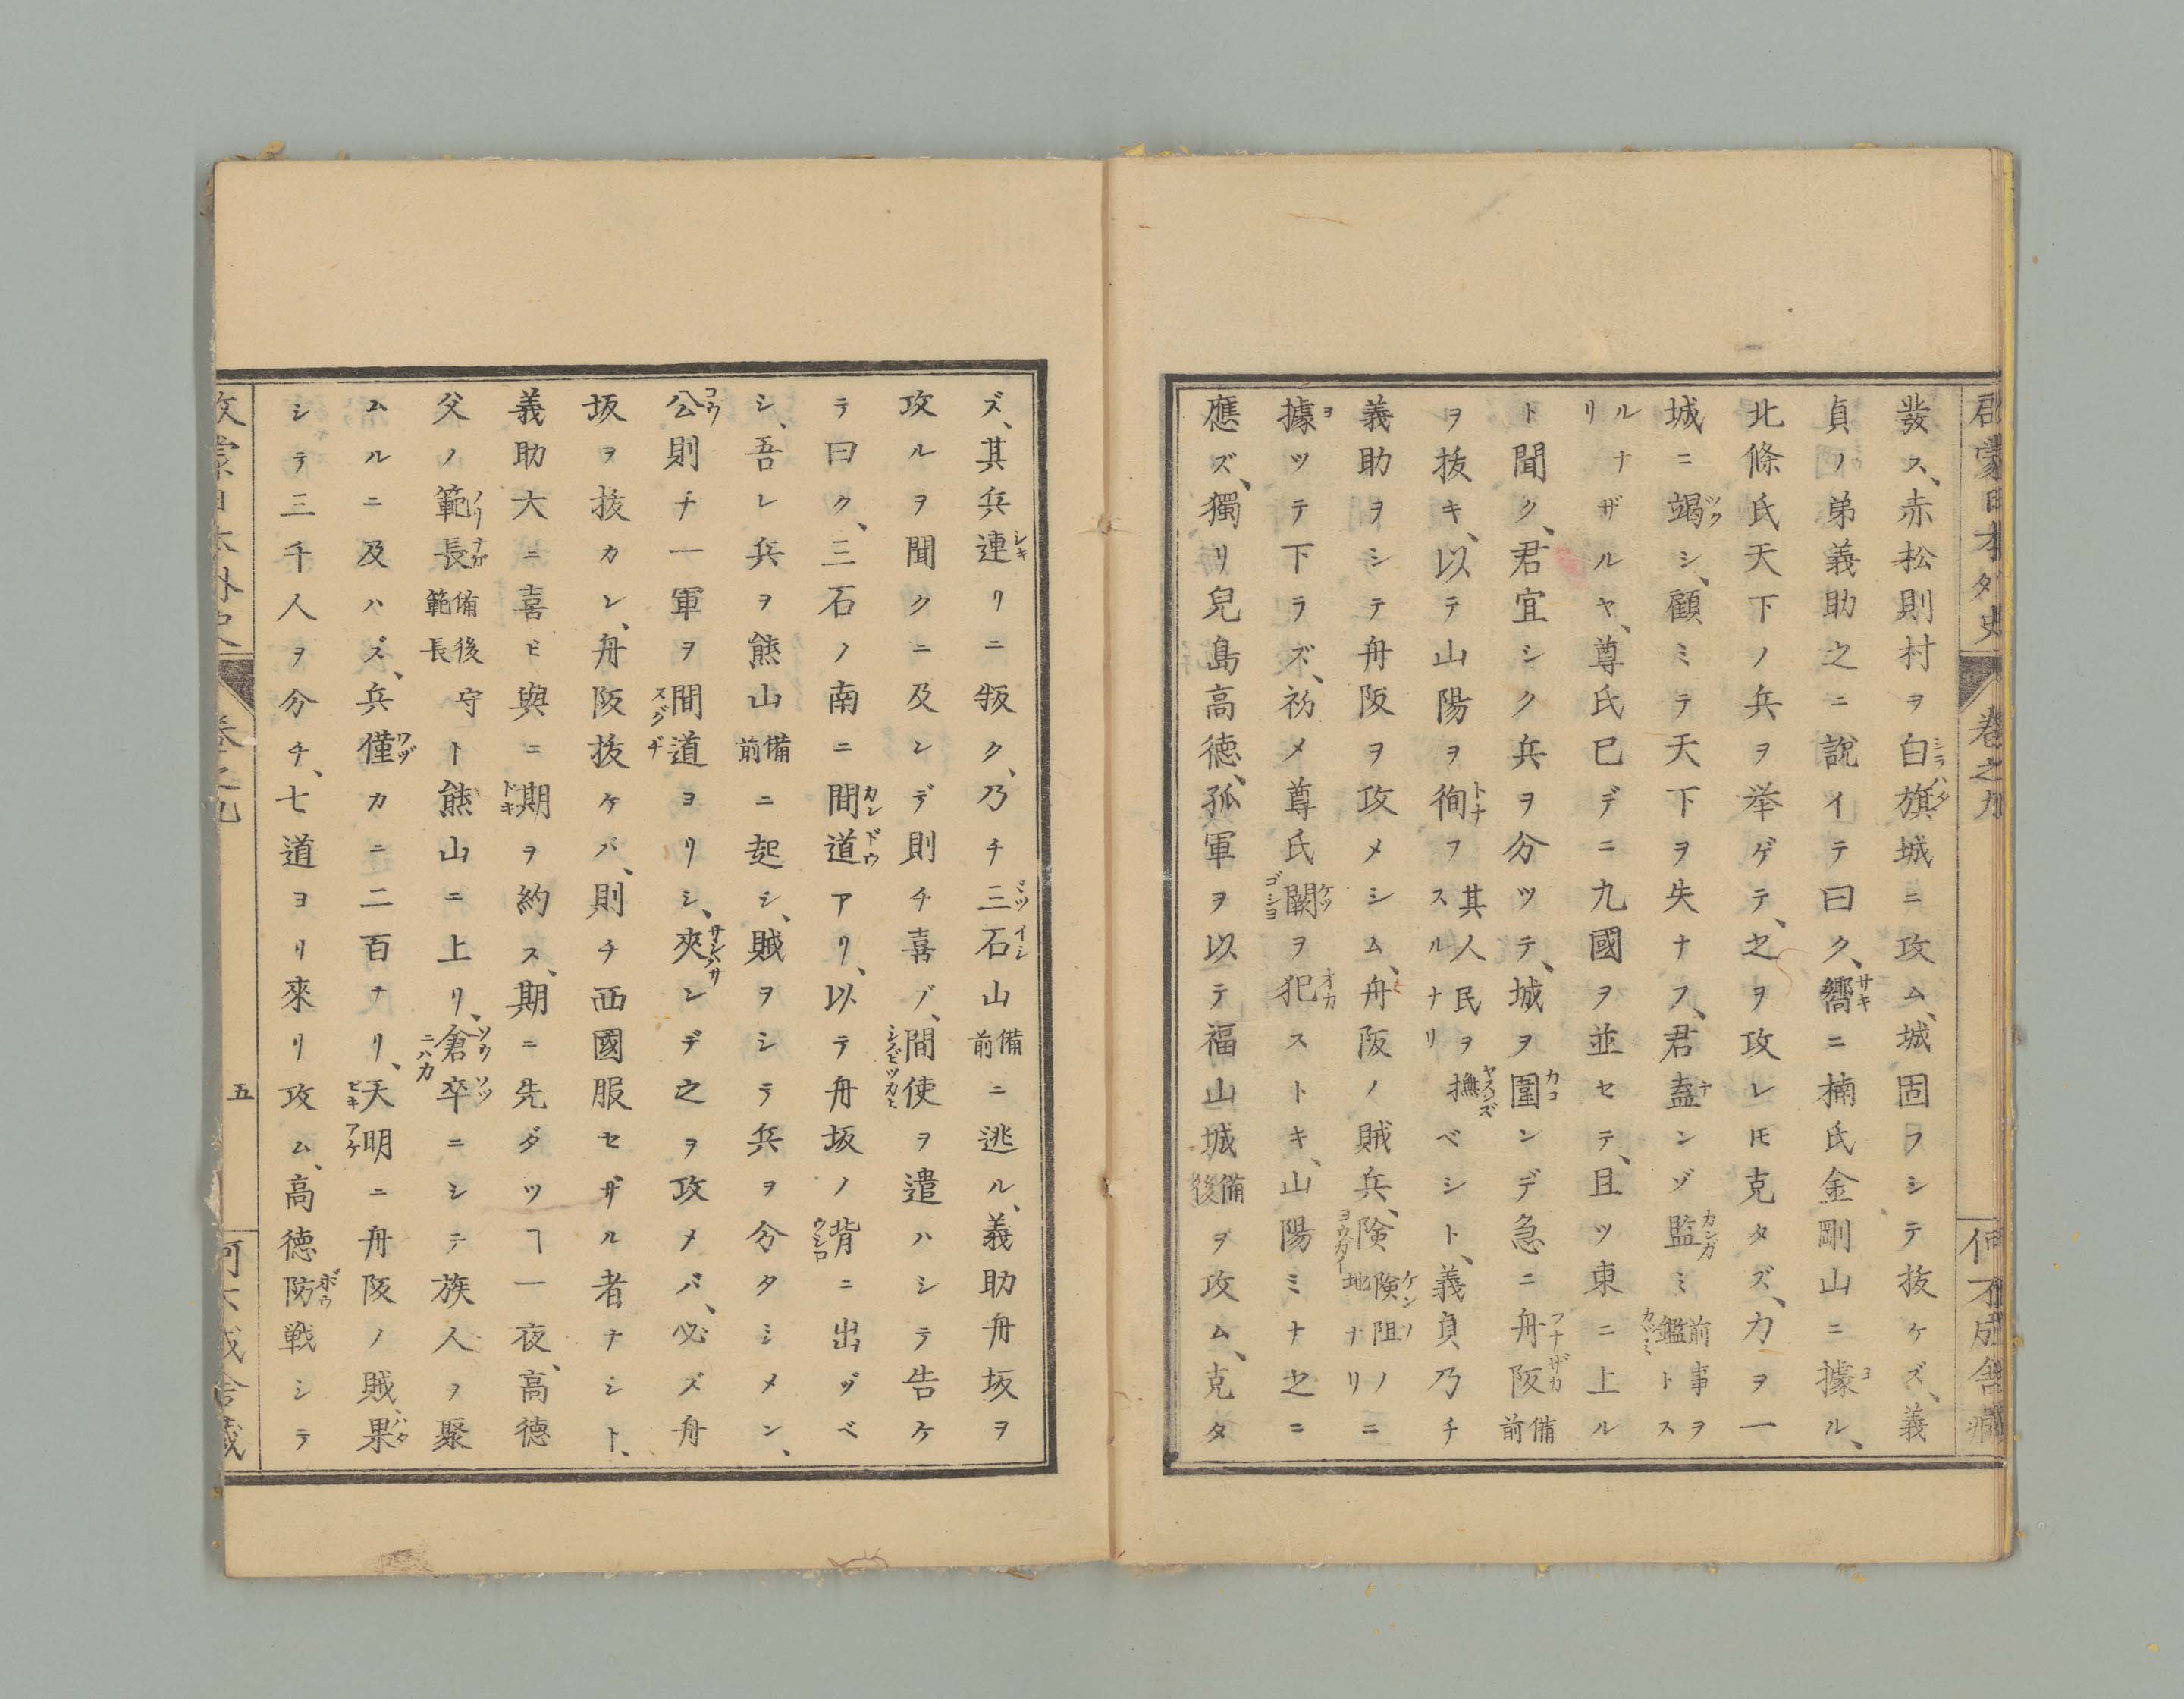 發ス、赤松則村ヲ白旗城ニ攻ム、城固フシテ抜ケズ、義
貞ノ弟義助之ニ說イテ曰ク、嚮ニ楠氏金剛山ニ據ル、
北條氏天下ノ兵ヲ挙ゲテ、之ヲ攻レ𪜈克タズ、力ヲ一
城ニ竭シ、顧ミテ天下ヲ失ナフ、君盍ンゾ監ミ前事ヲ鑑トス
ルナザルヤ、尊氏已デニ九國ヲ並セテ、且ツ東ニ上ル
ト聞ク、君宜シク兵ヲ分ツテ、城ヲ圍ンデ急ニ舟阪備前
ヲ抜キ、以テ山陽ヲ徇フ其人民ヲ撫スルナリベシト、義貞乃チ
義助ヲシテ舟阪ヲ攻メシム、舟阪ノ賊兵、険険阻ノ地ナリニ
據ツテ下ラズ、初メ尊氏闕ヲ犯ストキ、山陽ミナ之ニ
應ズ、獨リ兒島高徳、孤軍ヲ以テ福山城備後ヲ攻ム、克タ
ズ、其兵連リニ叛ク、乃チ三石山備前ニ逃ル、義助舟坂ヲ
攻ルヲ聞クニ及ンデ則チ喜ブ、間使ヲ遣ハシテ告ケ
テ曰ク、三石ノ南ニ間道アリ、以テ舟坂ノ背ニ出ヅベ
シ、吾レ兵ヲ熊山備前ニ起シ、賊ヲシテ兵ヲ分タシメン、
公則チ一軍ヲ間道ヨリシ、夾ンデ之ヲ攻メバ、必ズ舟
坂ヲ抜カン、舟阪抜ケバ、則チ西國服セザル者ナシト、
義助大ニ喜ビ與ニ期ヲ約ス、期ニ先ダツヿ一夜、高徳
父ノ範長備後守範長ト熊山ニ上リ、倉卒ニシテ族人ヲ聚
ムルニ及ハズ、兵僅カニ二百ナリ、天明ニ舟阪ノ賊果
シテ三千人ヲ分チ、七道ヨリ來リ攻ム、高徳防戦シテ
巻之九
五